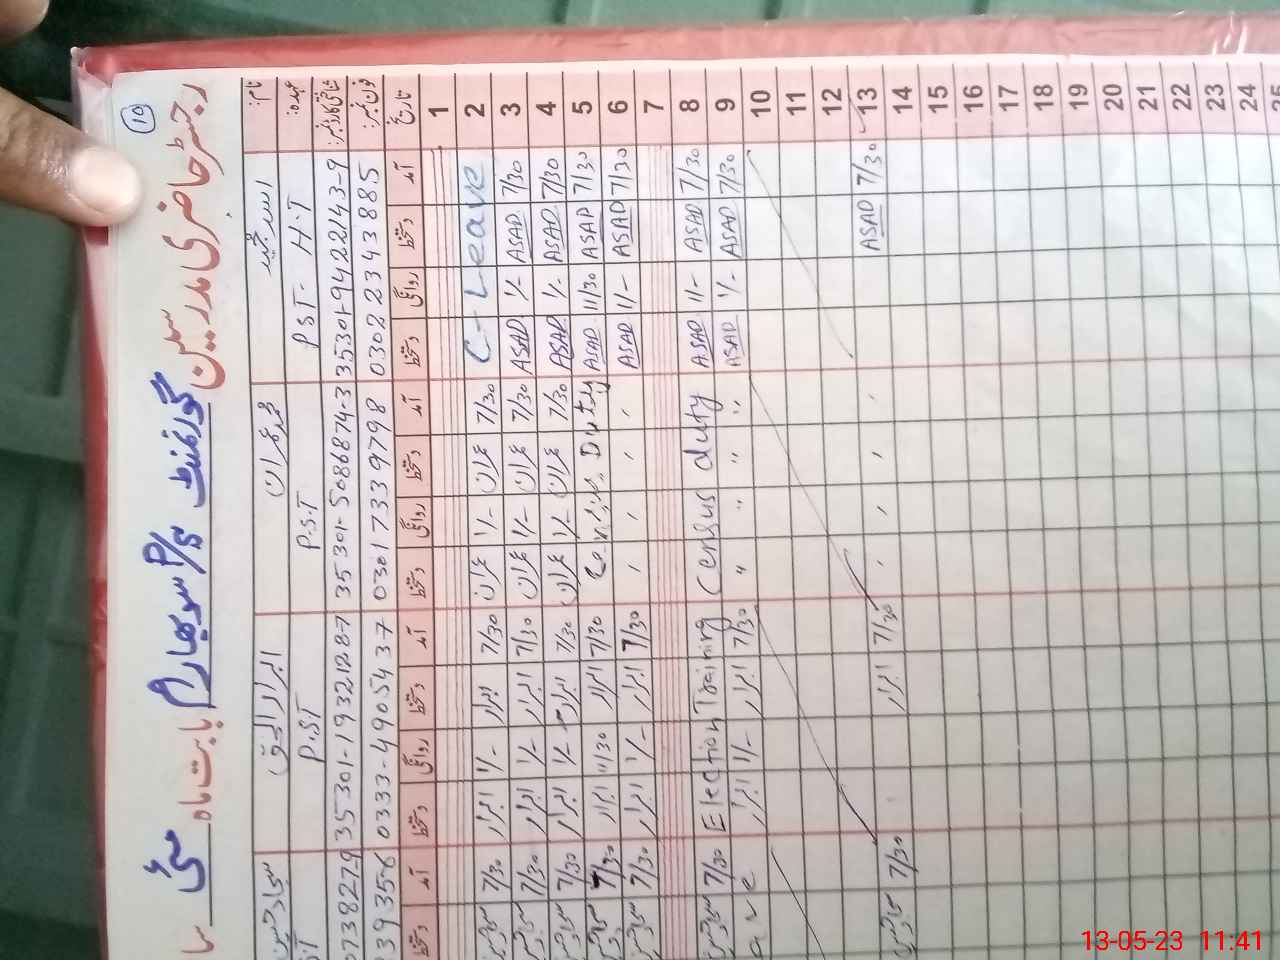 10
رجسٹر حاضری مدرسین گورنمنٹ P/S سوبھارام بابت ماہ مئی
نام:
عہدہ:
شناختی کارڈ نمبر:
فون نمبر:
تاریخ
اسد مجید
PST- H.T
35301-9422143-9
0302 2343885
آمد دستخط روانگی دستخط
محمد عمران
P.S.T
35301-5086874-3
0301 7339798
آمد دستخط روانگی دستخط
ابرار الحق
P.S.T
35301-1932128-7
0333-4905437
آمد دستخط روانگی دستخط
آمد دستخط
1
2 C-Leave 7/30 عمران 1/- عمران 7/30 ابرار 1/- ابرار 7/30
3 7/30 ASAD 1/- ASAD 7/30 عمران 1/- عمران 7/30 ابرار 1/- ابرار 7/30
4 7/30 ASAD 1/- ASAD 7/30 عمران 1/- عمران 7/30 ابرار 1/- ابرار 7/30
5 7/30 ASAD 11/30 ASAD Duty 7/30 ابرار 11/30 ابرار 7/30
6 7/30 ASAD 11/- ASAD 7/30 ابرار 1/- ابرار 7/30
7
8 7/30 ASAD 11/- ASAD Census duty Election Training 7/30
9 7/30 ASAD 1/- ASAD " " " " 7/30 ابرار 1/- ابرار
10
11
12
13 7/30 ASAD 7/30 ابرار 7/30
14
15
16
17
18
19
20
21
22
23
24
25
13-05-23 11:41